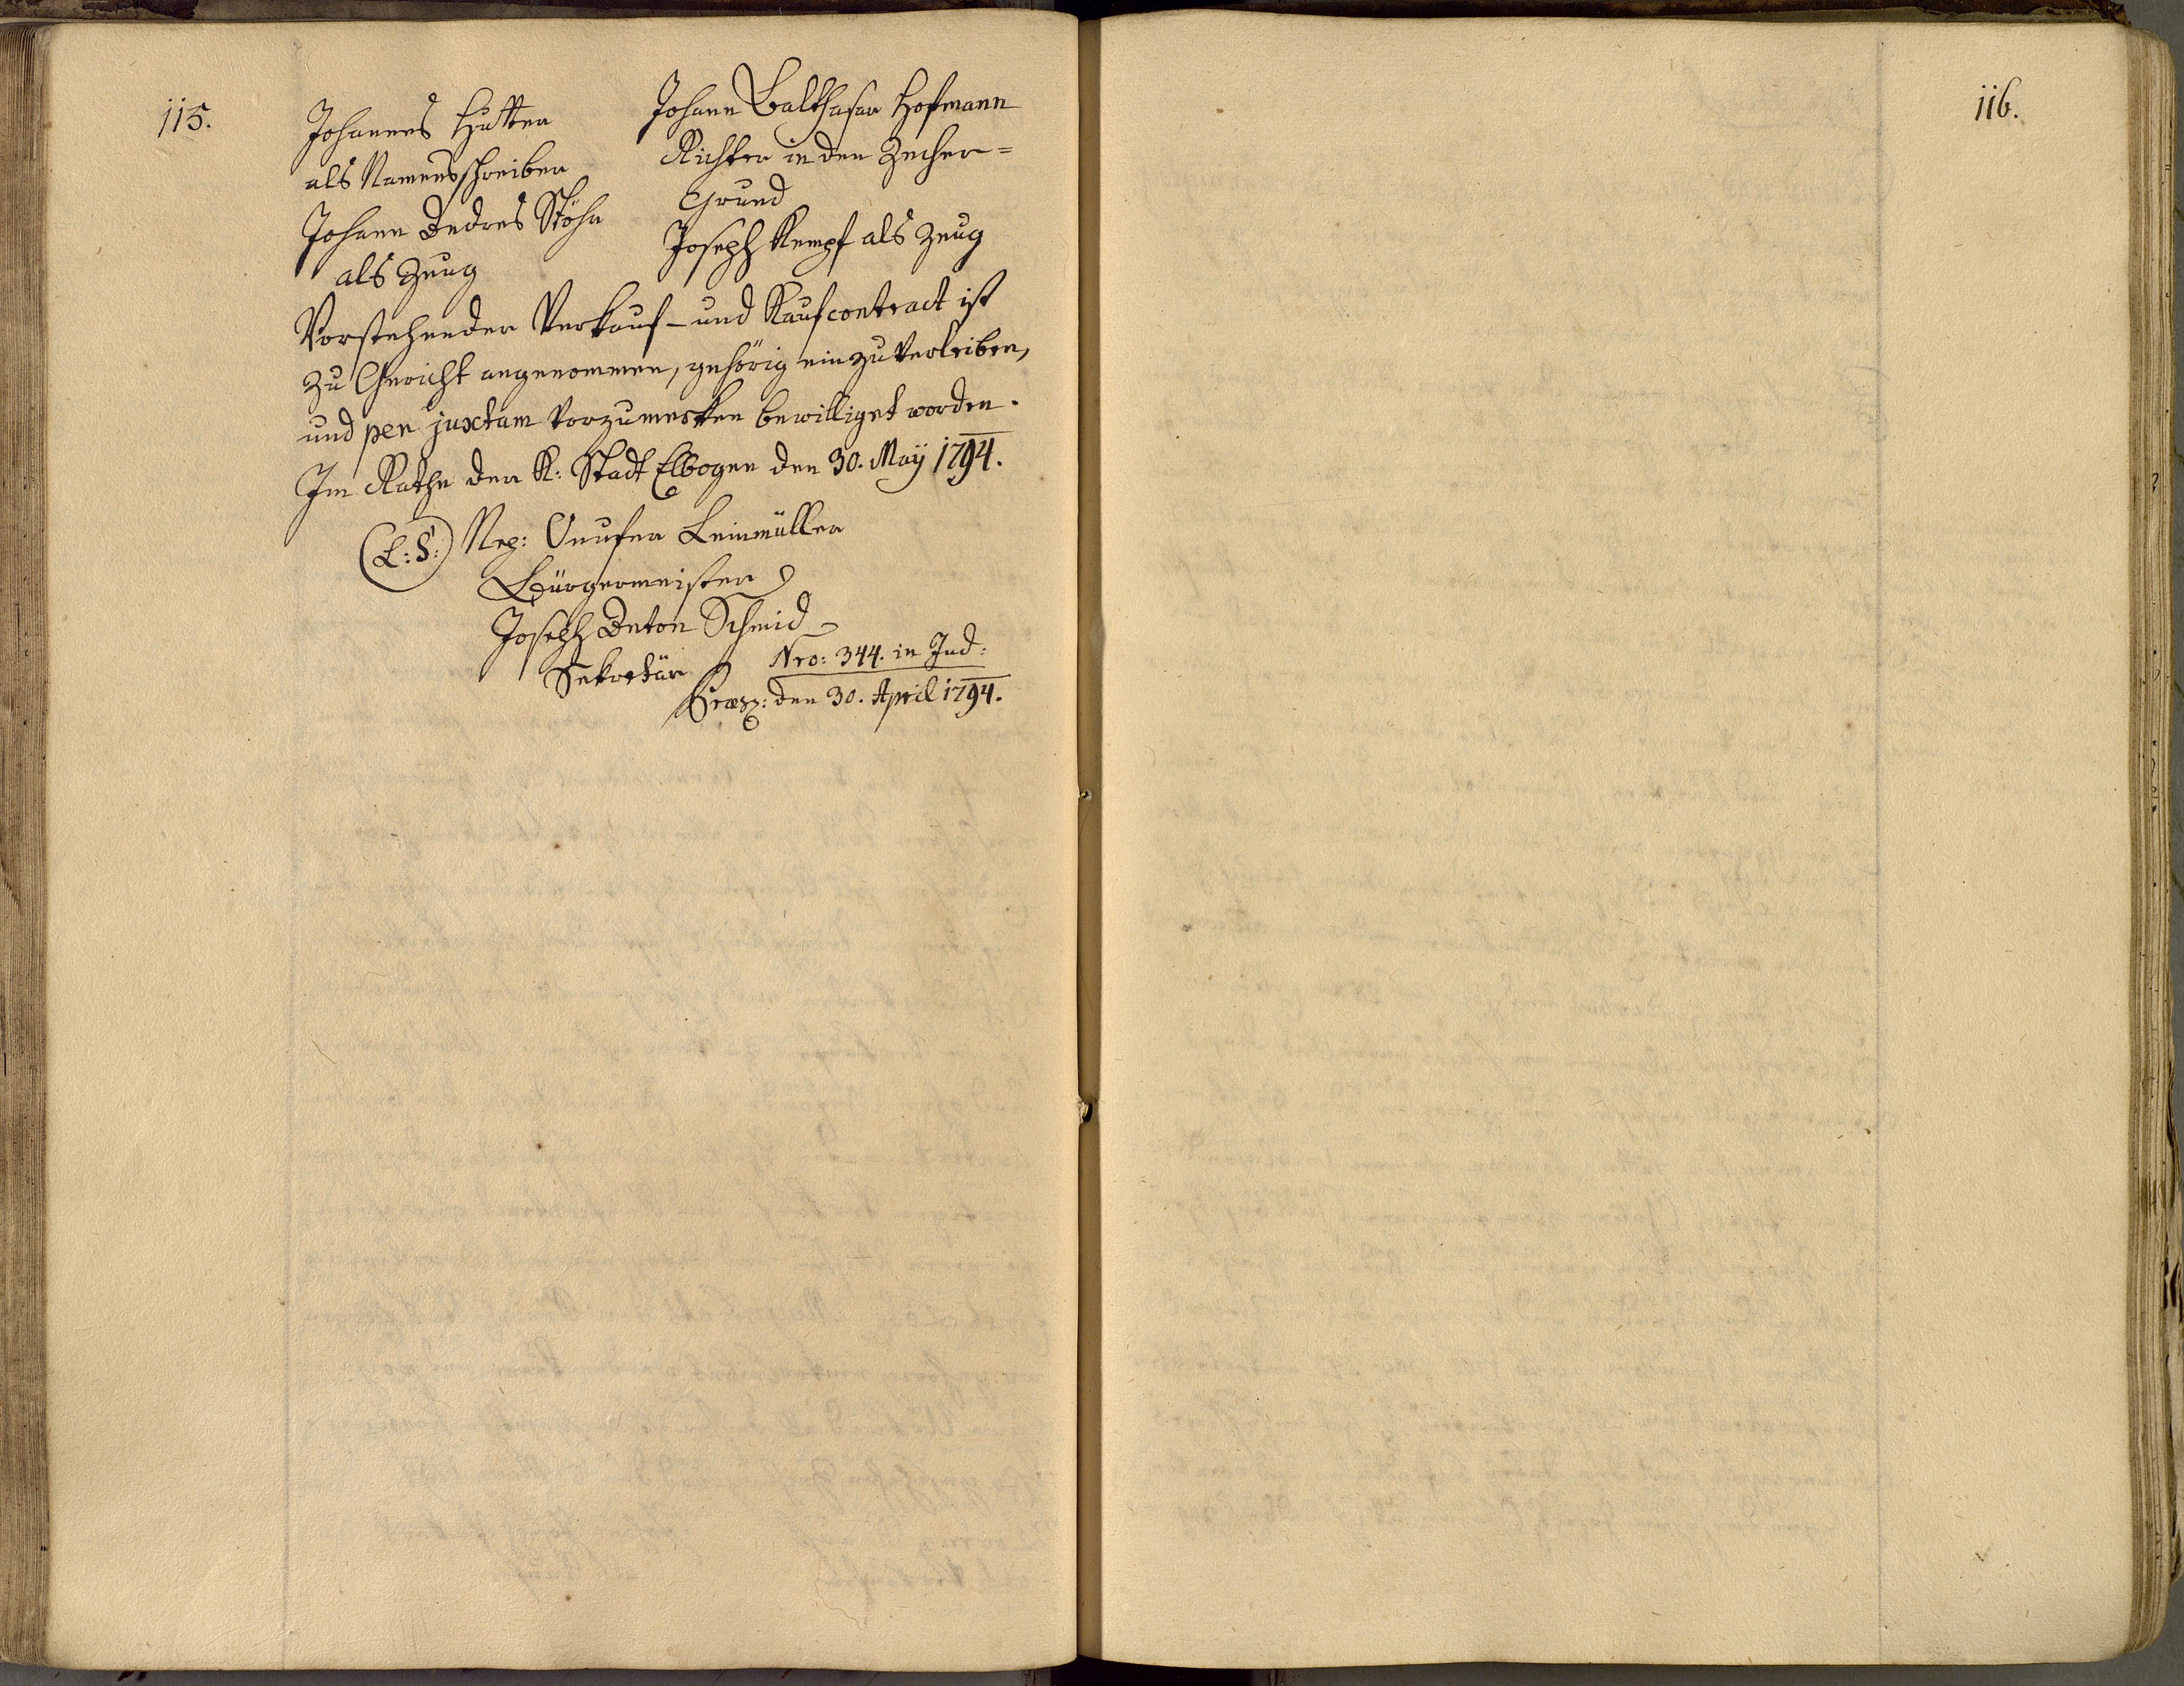 115.
Johannes Hutter
als Namensschreiber
Johann Andres Stöhr
als Zeug
Johann Balthasar Hofmann
Richter in der Zecher=
Grund
Joseph Kempf als Zeug
Vorstehender Verkauf- und Kaufcontract ist
zu Gericht angenommen, gehörig einzuverleiben,
und per juxtam vorzumerken bewilliget worden.
Im Rathe der K: Stadt Elbogen den 30. Maÿ 1794.
(L:S:) Nep: Onufer Leinmüller
Bürgermeister
Joseph Anton Schmid
Sekretär
Nro: 344. in Jud:
Præs: den 30. April 1794.
116.